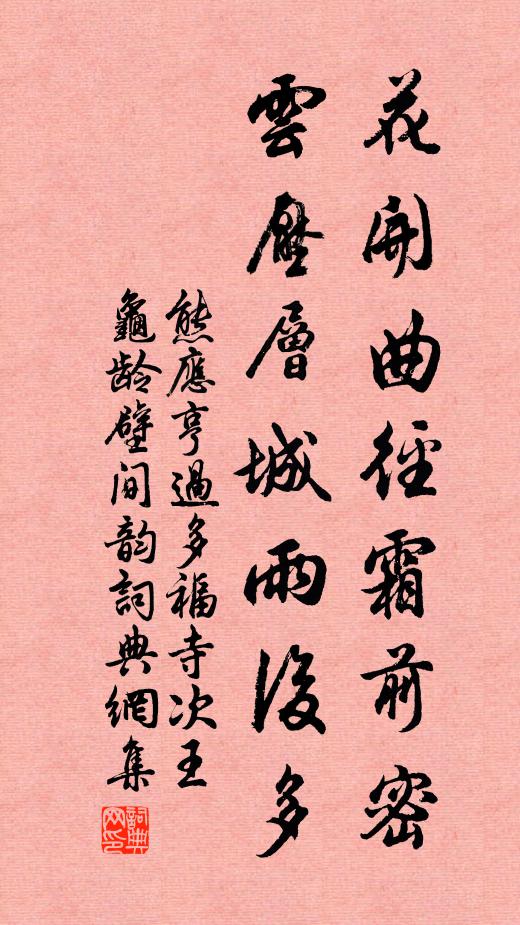 花開曲徑霜前密
雲壓層城雨後多
熊應亨過多福寺次王
龜齡壁间韵詞典網集
詞典网印